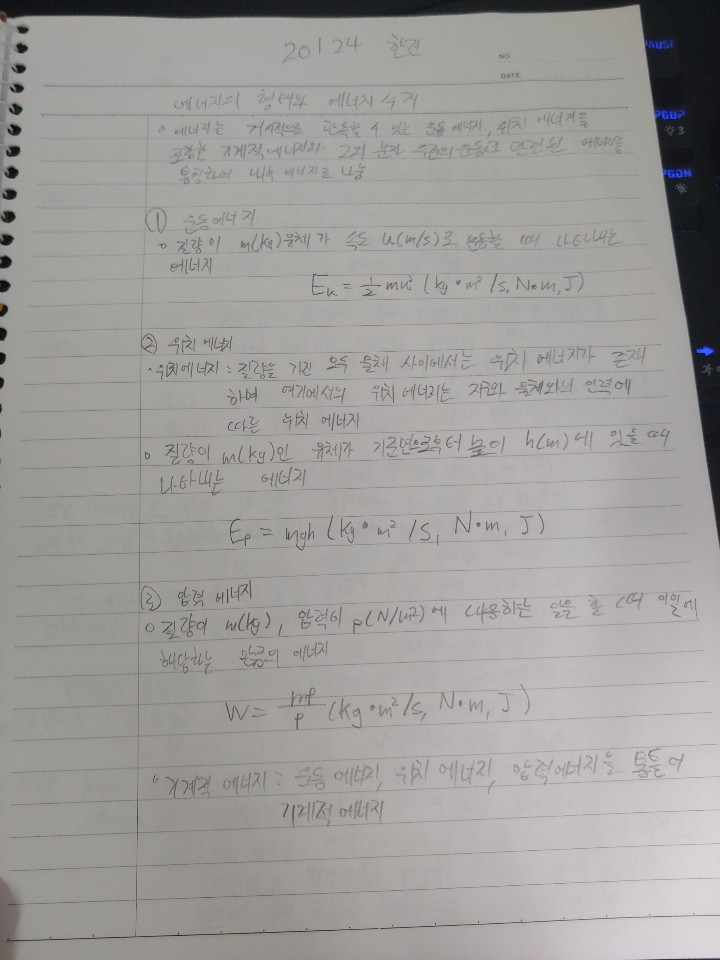 20124 한건
NO.
DATE
에너지의 형태와 에너지 수지
에너지는 거시적으로 관측할 수 있는 운동 에너지, 위치 에너지를
포함한 기계적 에너지와 그외 분자 운동과 관련된 에너지를
통칭하여 내부 에너지로 나눔
① 운동에너지
○ 질량이 m(kg)유체가 속도 u(m/s)로 운동할 때 나타내는
에너지
Ek = 1/2 mu² (kg•m²/s, N•m, J)
② 위치 에너지
·위치에너지 : 질량을 가진 모든 물체 사이에서는 위치 에너지가 존재
하며 여기에서의 위치 에너지는 지구와 물체와의 인력에
따른 위치 에너지
○ 질량이 m(kg)인 유체가 기준면으로부터 높이 h(m)에 있을 때
나타내는 에너지
Ep = mgh (kg•m²/s, N•m, J)
③ 압력 에너지
○ 질량이 m(kg), 압력이 p(N/m2)에 대응하는 일을 할 때 이일에
해당하는 만큼의 에너지
W = mp/ρ (kg•m²/s, N•m, J)
○ 기계적 에너지 : 운동 에너지, 위치 에너지, 압력에너지를 통틀어
기계적 에너지
PAUSE
PGUP
F3
PGDN